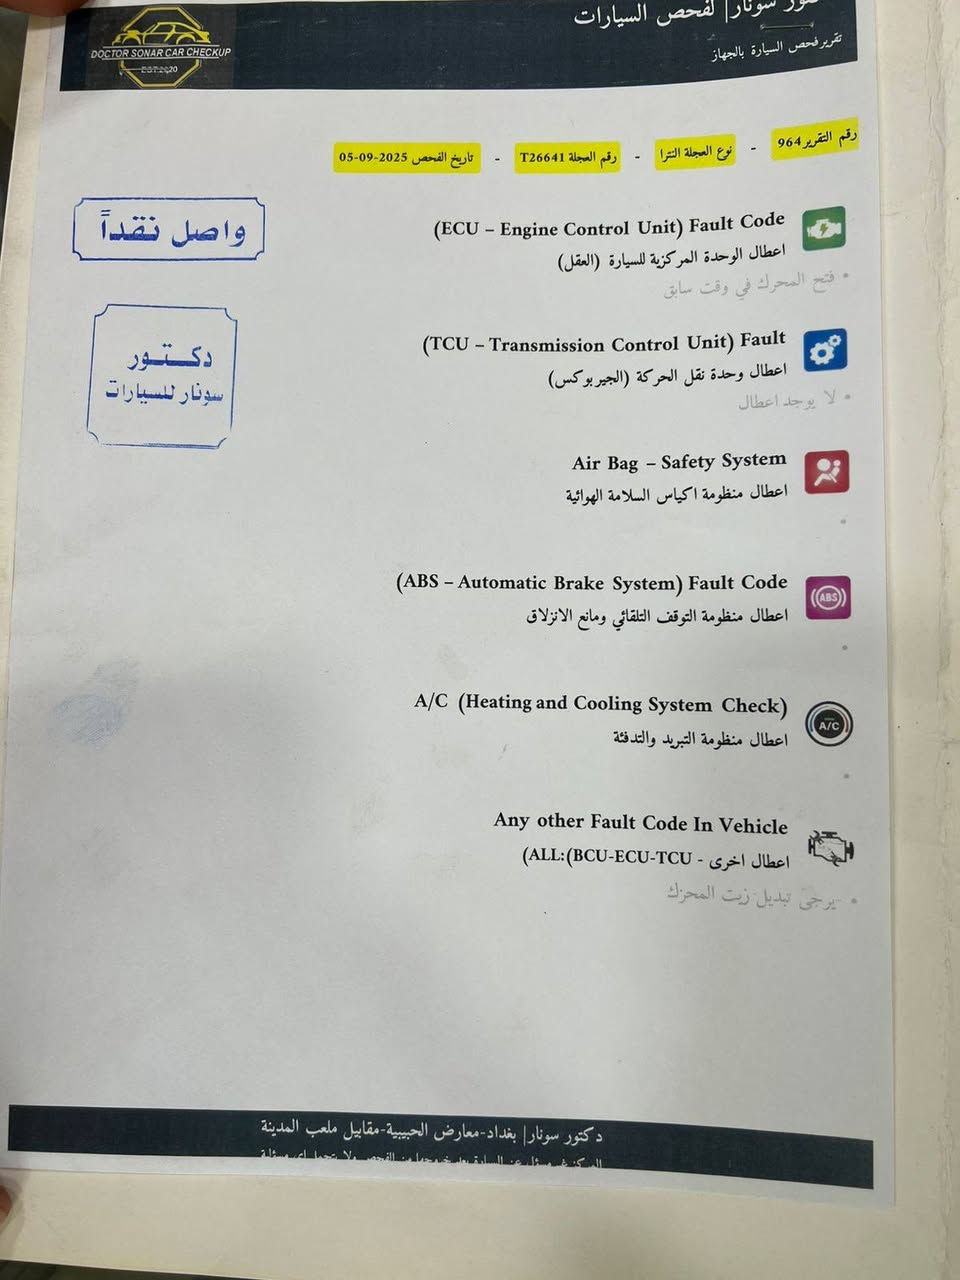 DOCTOR SONAR CAR CHECKUP
سونار| لفحص السيارات
تقرير فحص السيارة بالجهاز
رقم التقرير 964 - نوع العجلة النترا - رقم العجلة T26641 - تاريخ الفحص 05-09-2025
واصل نقداً
(ECU – Engine Control Unit) Fault Code
اعطال الوحدة المركزية للسيارة (العقل)
• فتح المحرك في وقت سابق
دكتور
سونار للسيارات
(TCU – Transmission Control Unit) Fault
اعطال وحدة نقل الحركة (الجيربوكس)
• لا يوجد اعطال
Air Bag – Safety System
اعطال منظومة اكياس السلامة الهوائية
(ABS – Automatic Brake System) Fault Code
اعطال منظومة التوقف التلقائي ومانع الانزلاق
ABS
A/C (Heating and Cooling System Check)
اعطال منظومة التبريد والتدفئة
A/C
Any other Fault Code In Vehicle
اعطال اخرى - ALL:(BCU-ECU-TCU)
• -يرجى تبديل زيت المحرك
دكتور سونار| بغداد-معارض الحبيبية-مقابيل ملعب المدينة